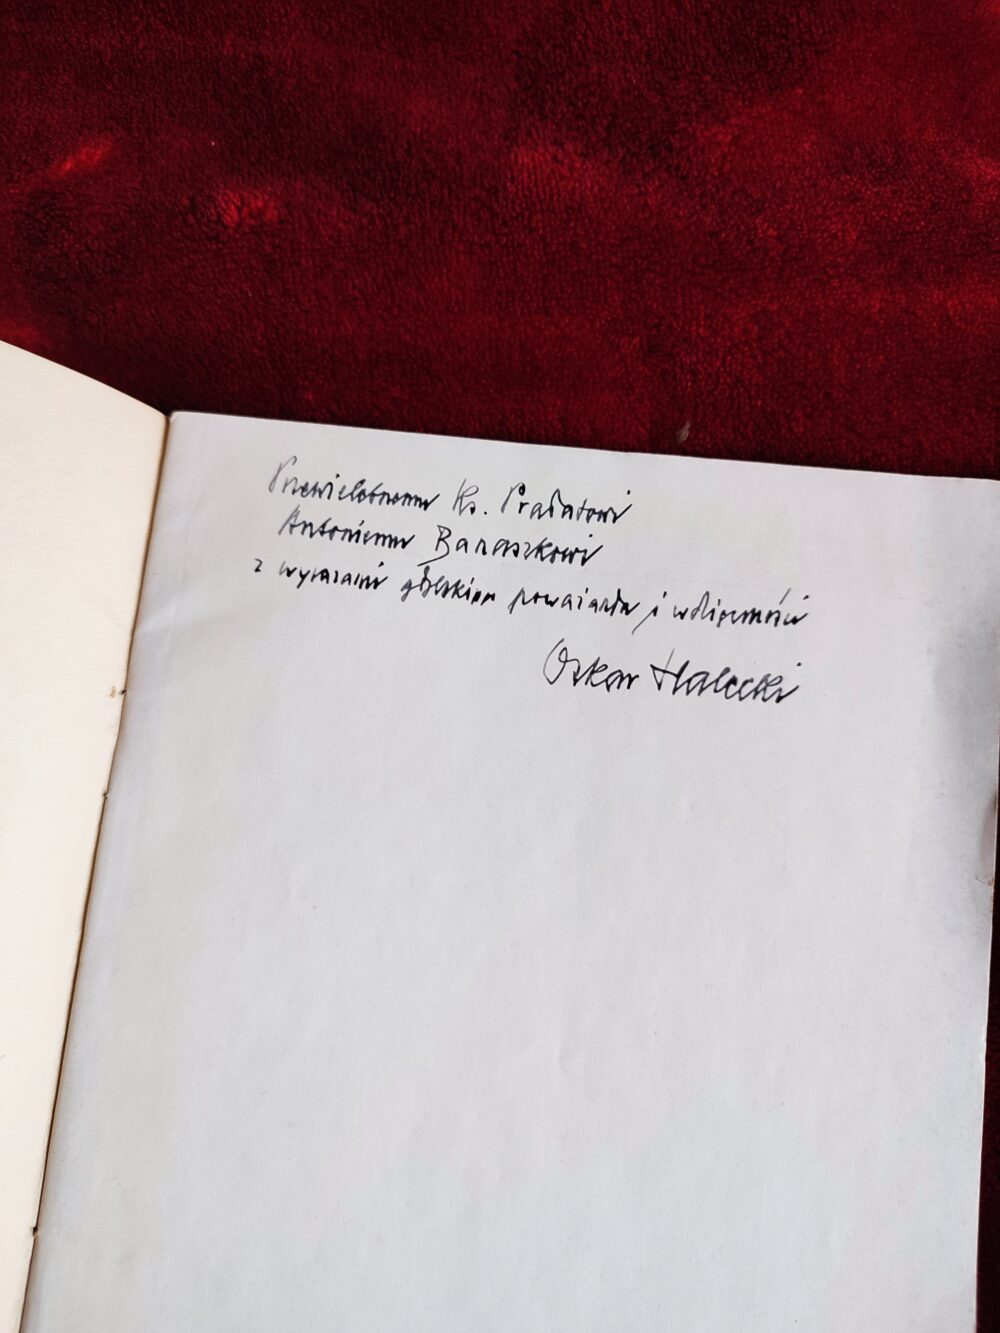 Przewielebnemu Ks. Prałatowi
Antoniemu Baraszkowi
z wyrazami głębokiego poważania i wdzięczności
Oskar Halecki